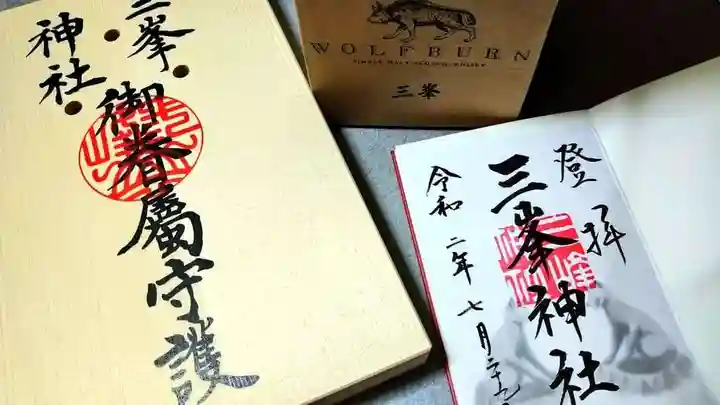 三峯
神社
御眷屬守護
WOLFBURN
SINGLE MALT SCOTCH WHISKY
三峯
登拝
三峯神社
令和二年七月二十九